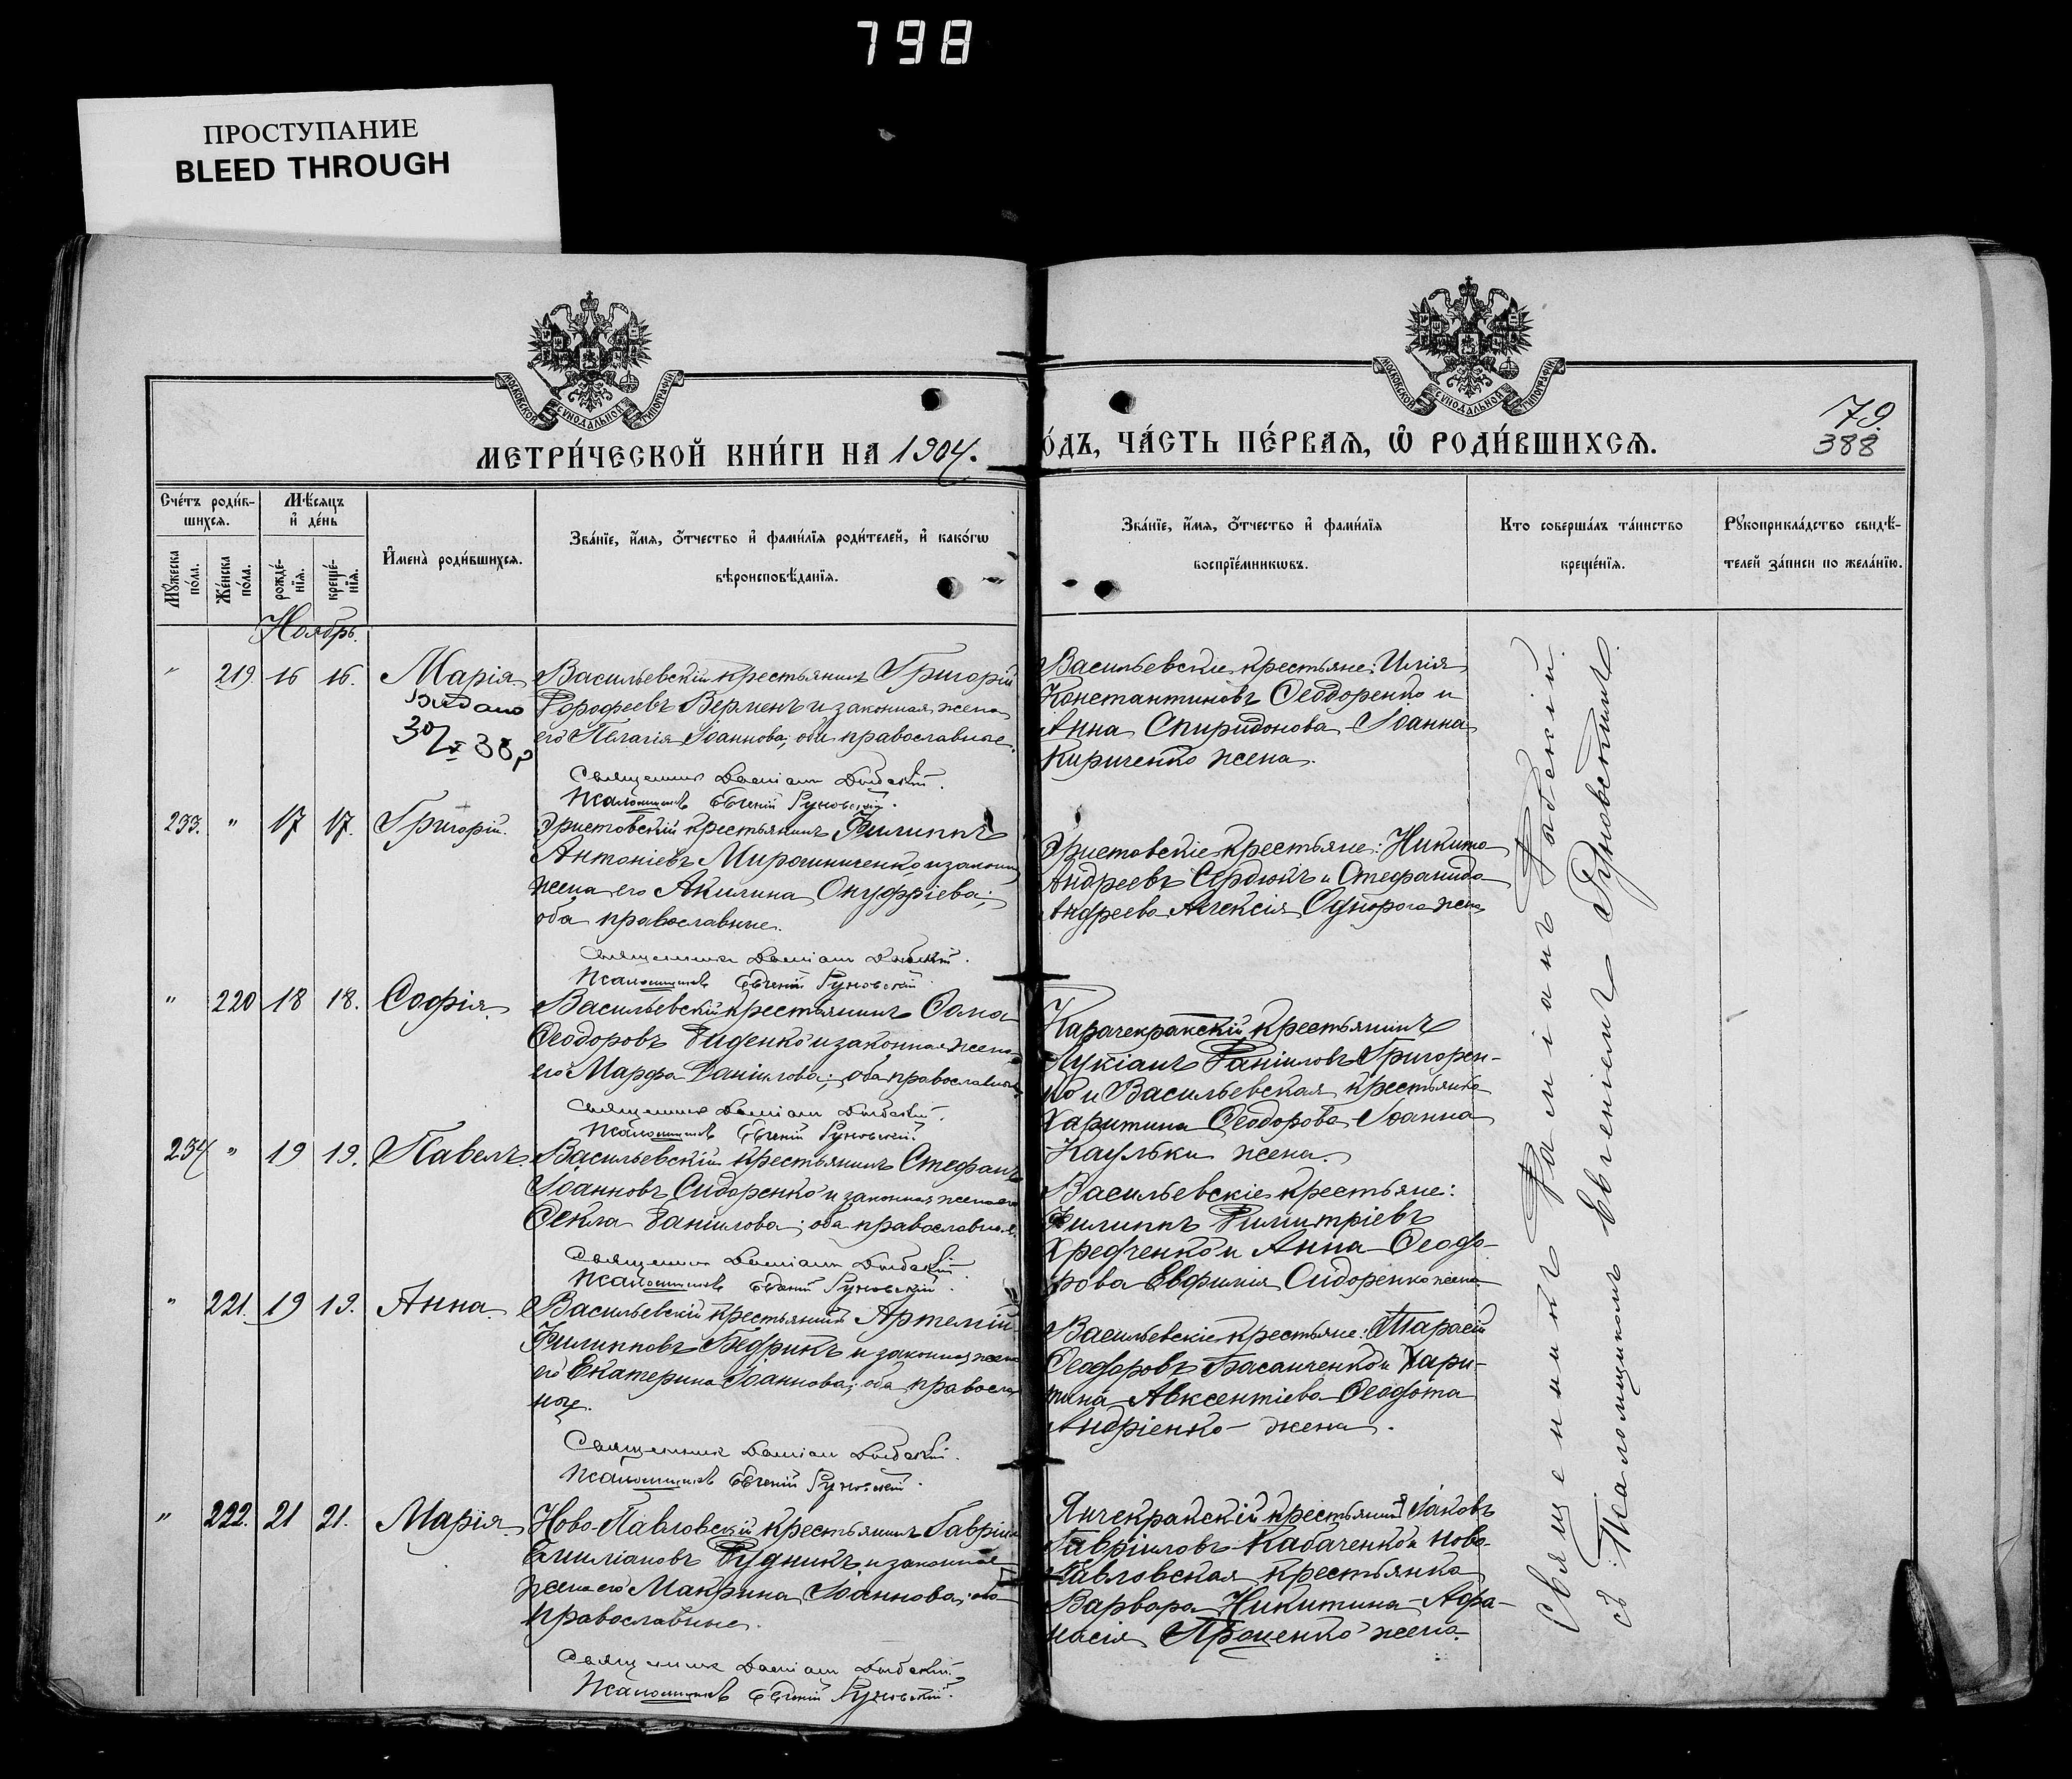 798
ПРОСТУПАНИЕ
BLEED THROUGH
МОСКОВСКОЙ СѴНОДАЛЬНОЙ ТИПОГРАФІИ
МОСКОВСКОЙ СѴНОДАЛЬНОЙ ТИПОГРАФІИ
79.
388
МЕТРИ́ЧЕСКОЙ КНИ́ГИ НА 1904.
О́ДЪ, ЧА́СТЬ ПЕ́РВАЯ, Ѽ РОДИ́ВШИХСЯ.
Сче́тъ роди́в-
шихся.
Мꙋ́жеска по́ла.
Же́нска по́ла.
Мѣ́сяцъ
и҆ де́нь
рожде́-
нїя.
креще́-
нїя.
И҆мена̀ роди́вшихся.
Зва́нїе, и҆́мя, ѻ҆́тчество и҆ фами́лїя роди́телей, и҆ како́гѡ
вѣроисповѣ́данїя.
Зва́нїе, и҆́мя, ѻ҆́тчество и҆ фами́лїя
воспрїе́мникѡвъ.
Кто соверша́лъ та́инство
креще́нїя.
Рꙋкоприкла́дство свидѣ́-
телей за́писи по жела́нїю.
Ноябрь.
" 219 16 16. Марія
Видано
30/X 38 р
Васильевскій крестьянинъ Григорій
Дорофеевъ Верменъ и законная жена
его Пелагія Іоаннова; оба православные.
Священникъ Даміанъ
Псаломщикъ Евгеній Руновскій.
Васильевскіе крестьяне: Илія
Константиновъ Ѳеодоренко и
Анна Спиридонова Іоанна
Кириченко жена.
233. " 17 17. Григорій.
Эристовскій крестьянинъ Филиппъ
Антоніевъ Мирошниченко и законн
жена его Акилина Онуфріева;
оба православные.
Священникъ Даміанъ
Псаломщикъ Евгеній Руновскій
Эристовскіе крестьяне: Никита
Андреевъ Сердюкъ и Стефанида
Андреева Алексія Однорога жена
" 220 18 18. Софія.
Васильевскій крестьянинъ Сава
Ѳеодоровъ Диденко и законная жена
его Марфа Даніилова; оба православные
Священникъ Даміанъ
Псаломщикъ Евгеній Руновскій.
Карачекракскій крестьянинъ
Лукіанъ Даніиловъ Григорен-
ко и Васильевская крестьянка
Харитина Ѳеодорова Іоанна
Каульки жена.
234 " 19 19. Павелъ.
Васильевскій крестьянинъ Стефанъ
Іоанновъ Сидоренко и законная жена его
Ѳекла Даніилова; оба православные.
Священникъ Даміанъ
Псаломщикъ Евгеній Руновскій.
Васильевскіе крестьяне:
Филиппъ Димитріевъ
Хредченко и Анна Ѳеодо-
рова Евфимія Сидоренко жена
" 221. 19 19. Анна.
Васильевскій крестьянинъ Артемій
Филипповъ Бедрикъ и законная жена
его Екатерина Іоаннова; оба православ
ные.
Священникъ Даміанъ
Псаломщикъ Евгеній Руновскій.
Васильевскіе крестьяне: Тарасій
Ѳеодоровъ Басанченко и Хари-
тина Авксентіева Ѳеодота
Андріенко жена.
" 222. 21 21. Марія
Ново-Павловскій крестьянинъ Гавріилъ
Емиліановъ Рудникъ и законная
жена его Макрина Іоаннова; оба
православные.
Священникъ Даміанъ
Псаломщикъ Евгеній Руновскій.
Янчекракскій крестьянинъ Іаковъ
Гавріиловъ Кабаченко и Ново-
Павловская крестьянка
Варвара Никитина Афа-
насія Проценко жена.
Священникъ Даміанъ
съ Псаломщикомъ Евгеніемъ Руновскимъ.